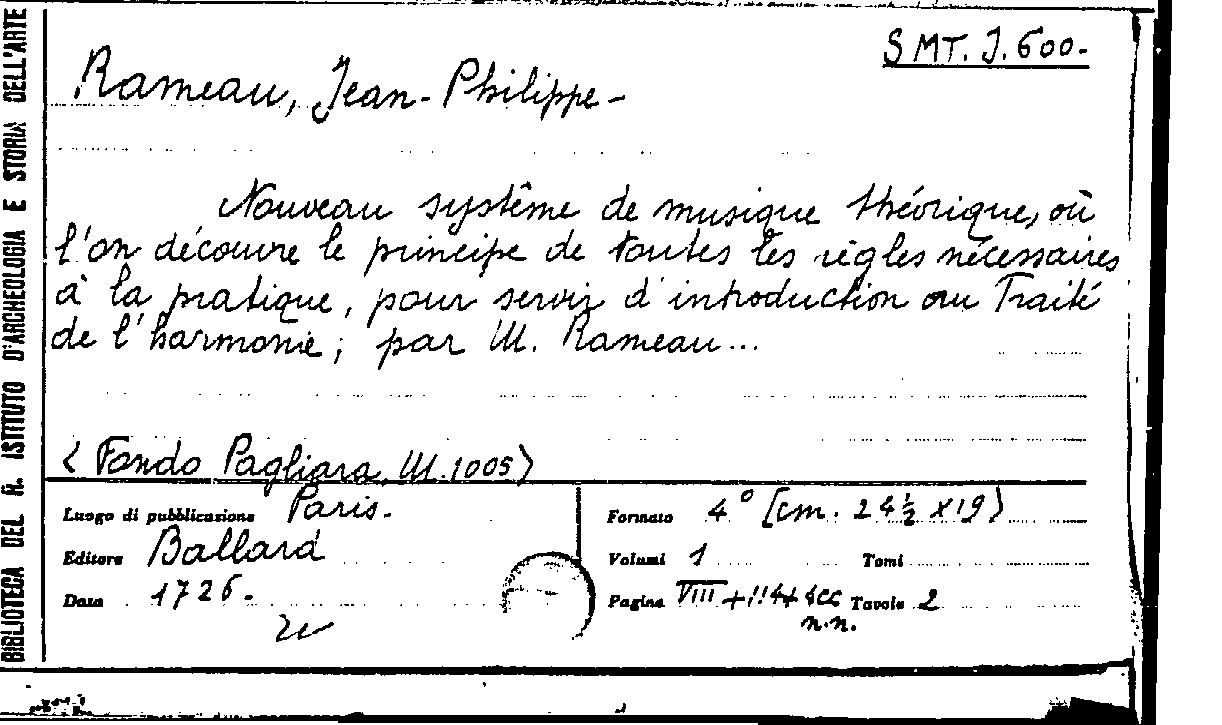 BIBLIOTECA DEL R. ISTITUTO D'ARCHEOLOGIA E STORIA DELL'ARTE
SMT. J. 600-
Rameau, Jean-Philippe-
Nouveau système de musique théorique, où
l'on découvre le principe de toutes les règles nécessaires
à la pratique, pour servir d'introduction au Traité
de l'harmonie; par M. Rameau...
(Fondo Pagliara, M. 1005)
Luogo di pubblicazione Paris.
Editore Ballard
Data 1726.
Formato 4° [cm. 24½ x 19)
Volumi 1 Tomi
Pagine VIII + 114 + Tavole 2
n.n.